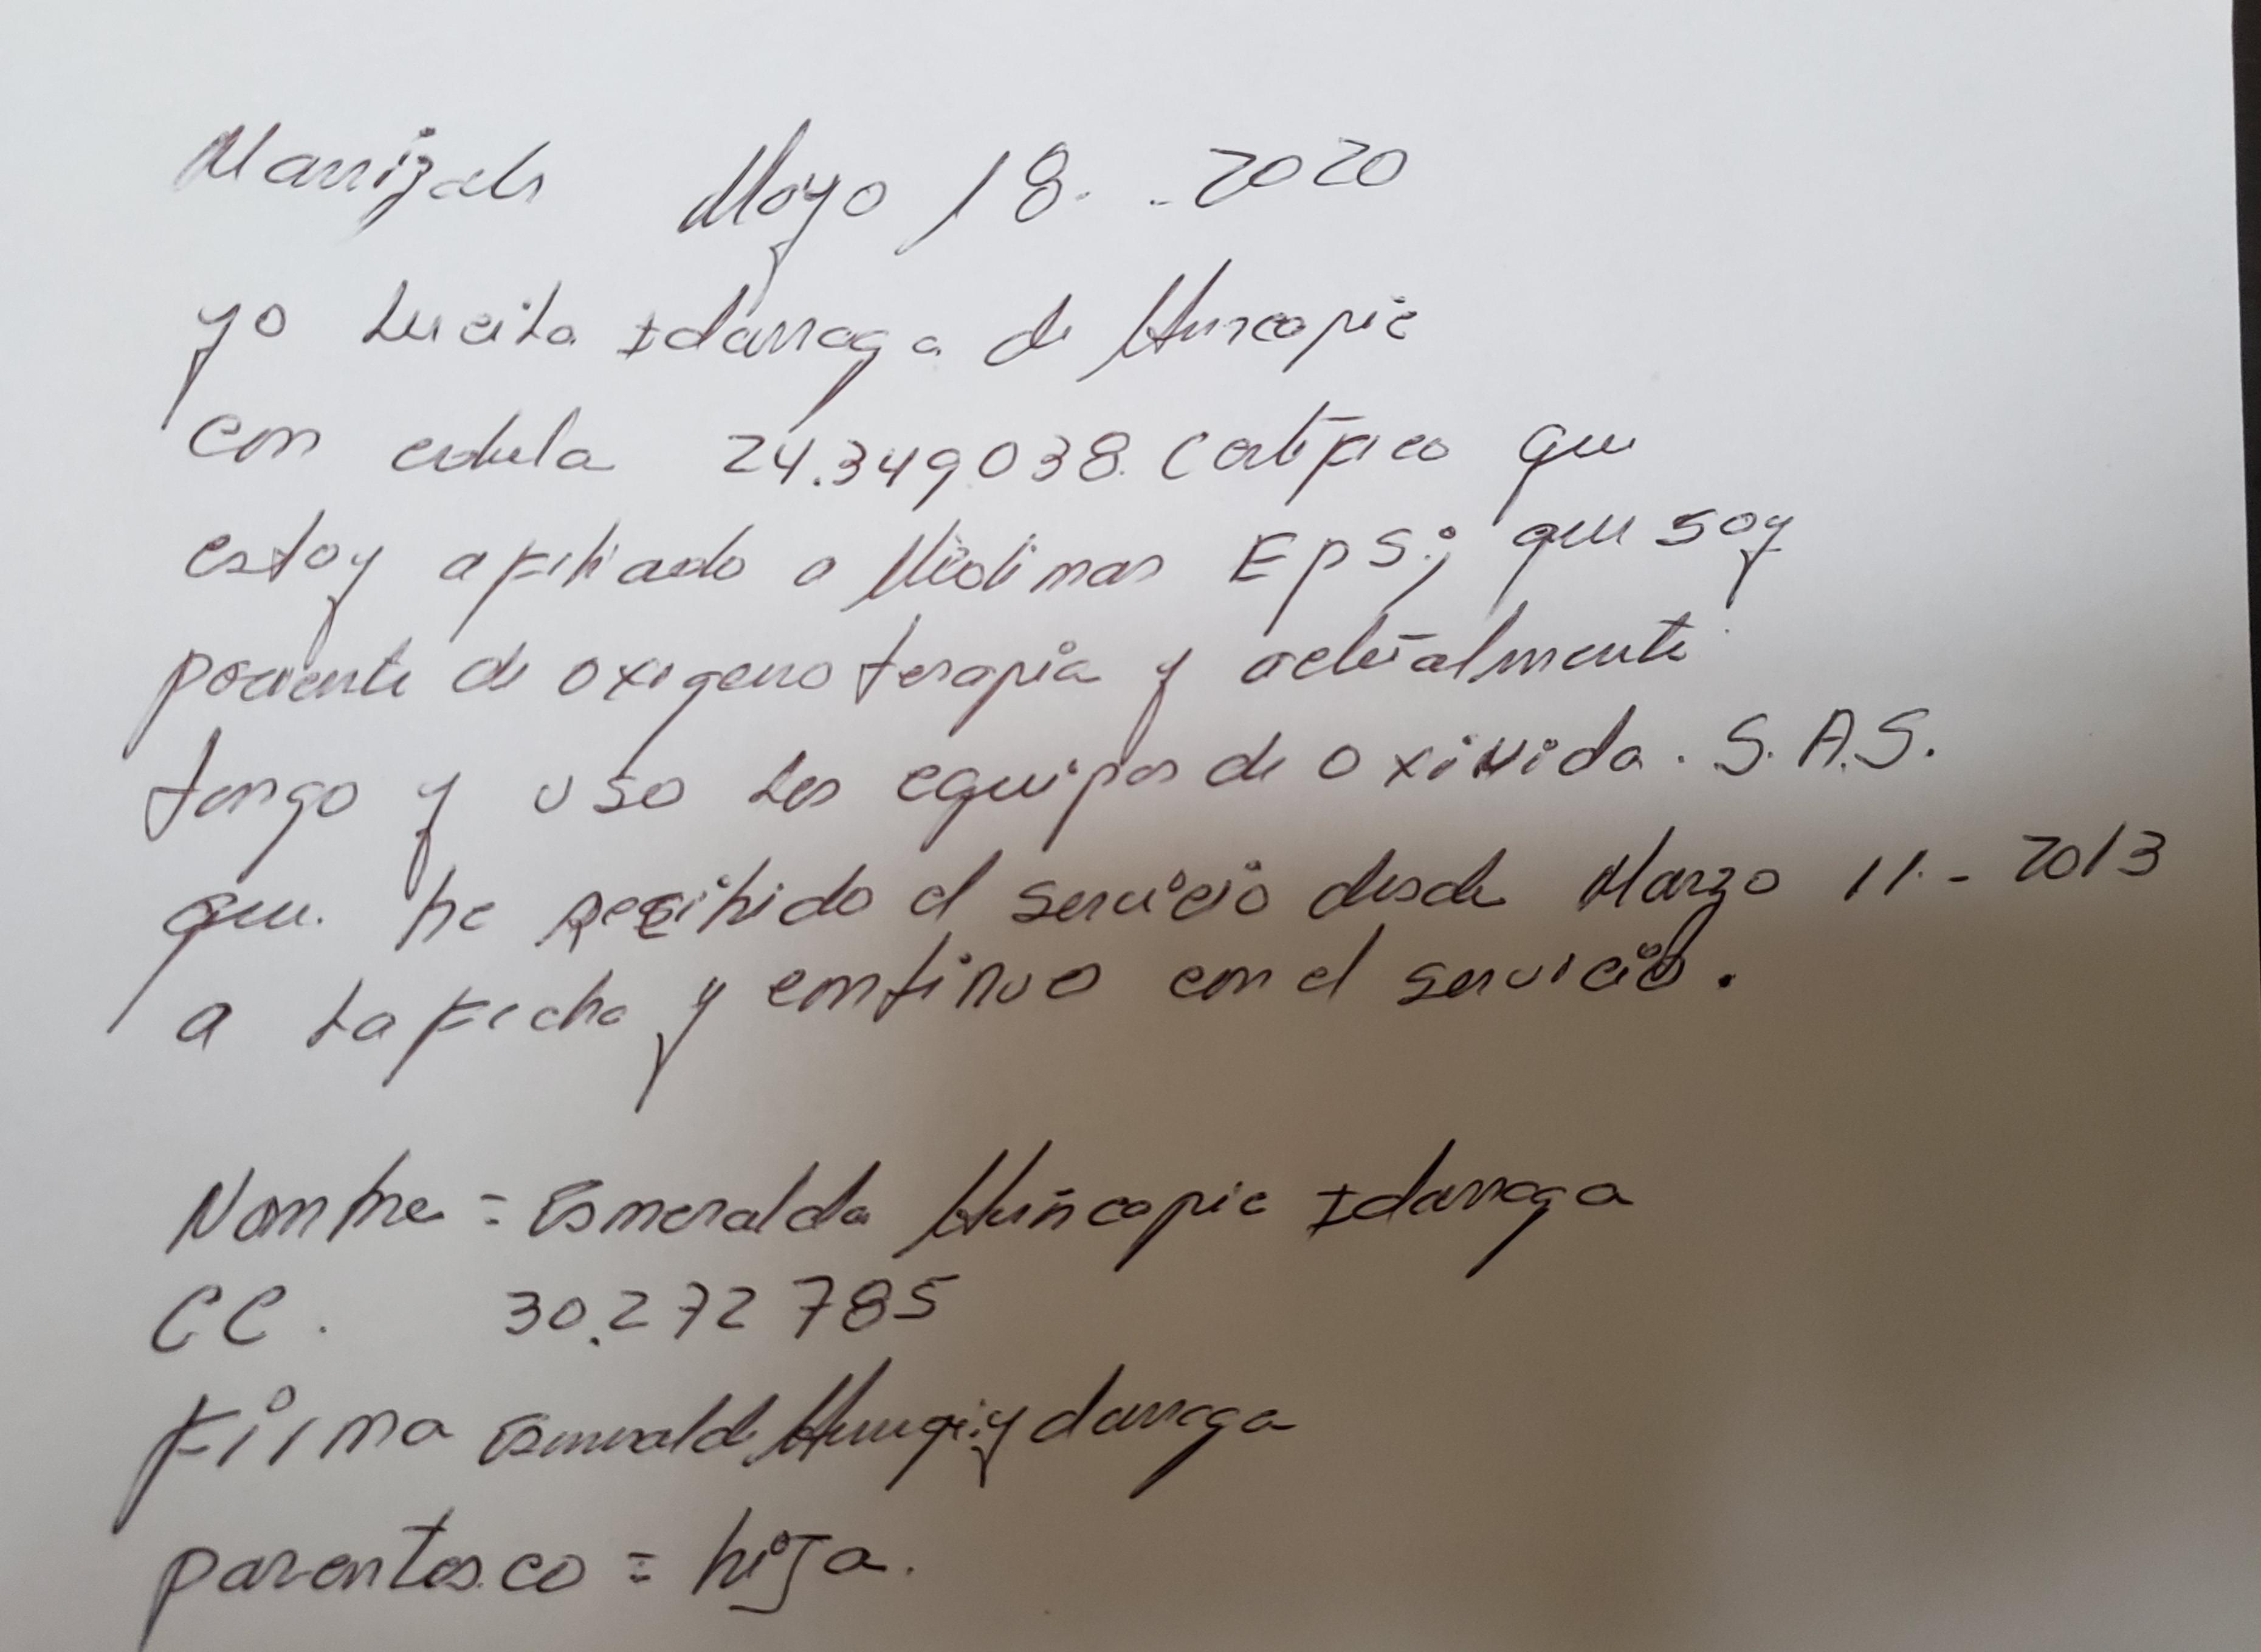 Manizales Mayo 18. - 2020
yo Lucila Idarraga de Hincapie
con cedula 24.349.038. Certifico que
estoy afiliado a Medimas EPS; que soy
paciente de oxigeno terapia y actualmente
tengo y uso los equipos de oxivida. S.A.S.
que. he recibido el servicio desde Marzo 11. - 2013
a la fecha y continuo con el servicio.
Nombre = Esmeralda Hincapie Idarraga
CC. 30.272 785
Firma Esmeralda Hincapie Ydarraga
parentesco = hija.